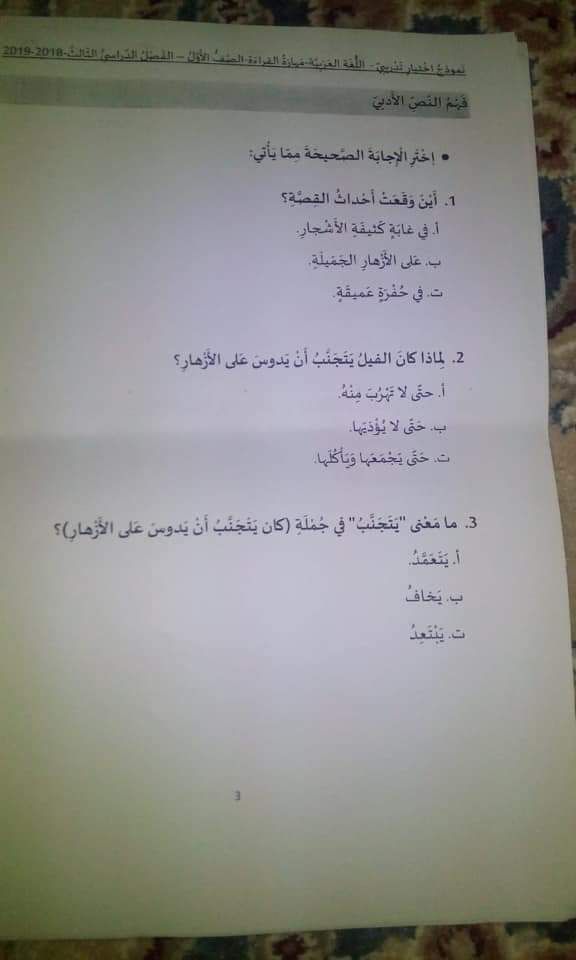 نموذج اختبار تدريبيّ- اللُّغة العَربيَّة-مَهارَةُ القِراءَة-الصَّفُّ الأوَّلُ – الفَصْلُ الدّراسيُّ الثّالثُ-2018-2019
فَهْمُ النَّصّ الأَدَبِيّ
• اِخْتَرِ الْإِجابَةَ الصَّحيحَةَ مِمّا يَأْتي:
1. أَيْنَ وَقَعَتْ أَحْداثُ القِصَّةِ؟
أ. في غابَةٍ كَثيفَةِ الأَشْجارِ.
ب. عَلى الأَزْهارِ الجَميلَةِ.
ت. في حُفْرَةٍ عَميقَةٍ.
2. لِماذا كانَ الفيلُ يَتَجَنَّبُ أَنْ يَدوسَ عَلى الأَزْهارِ؟
أ. حتّى لا تَهْرُبَ مِنْهُ.
ب. حَتّى لا يُؤْذيَها.
ت. حَتّى يَجْمَعَها وَيَأْكُلَها.
3. ما مَعْنى "يَتَجَنَّبُ" في جُمْلَةِ (كان يَتَجَنَّبُ أَنْ يَدوسَ عَلى الأَزْهارِ)؟
أ. يَتَعَمَّدُ.
ب. يَخافُ
ت. يَبْتَعِدُ
3